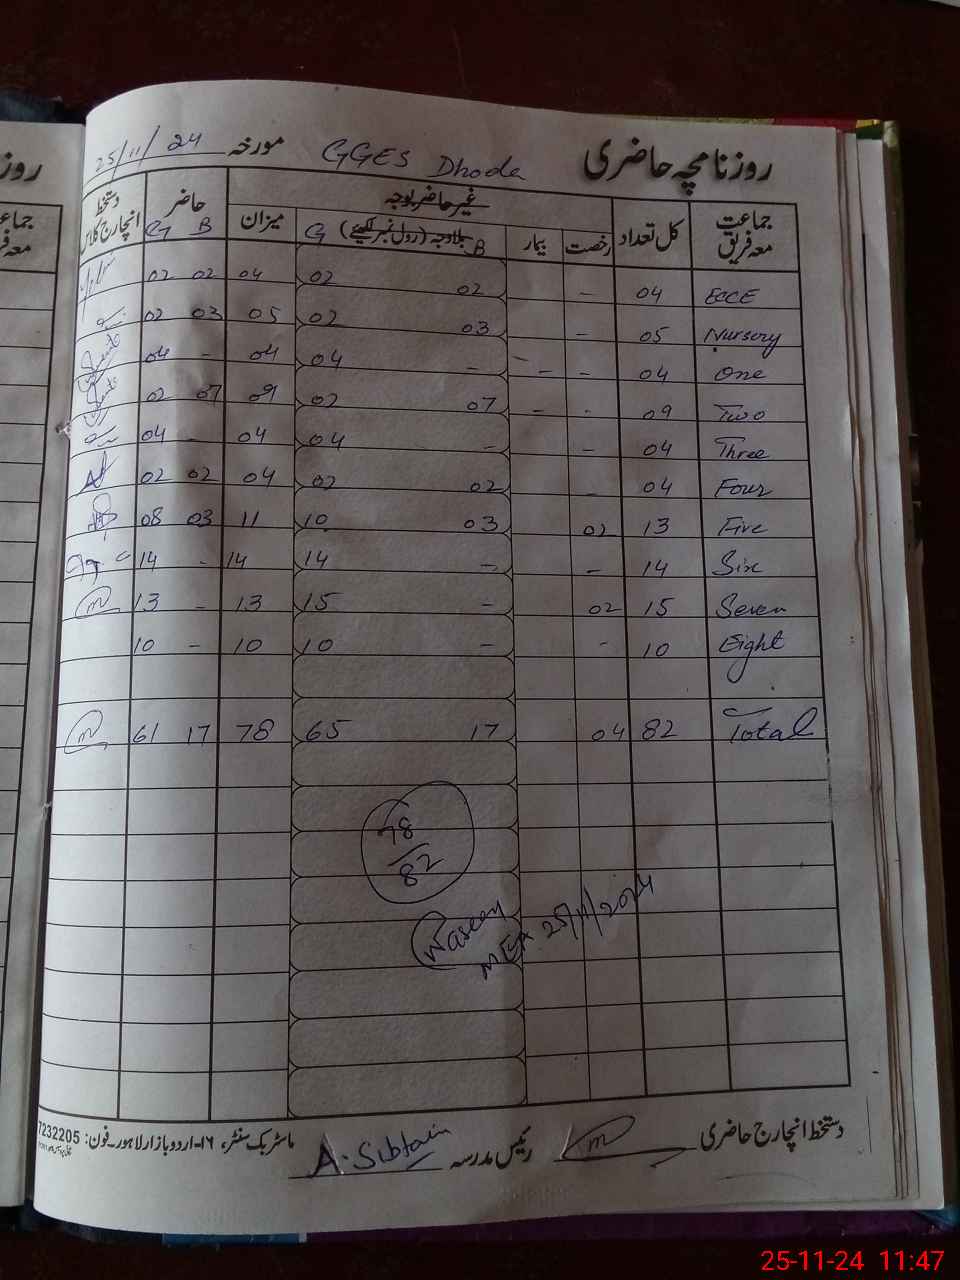 روزنامچہ حاضری GGES Dhode مورخہ 25/11/24
جماعت معہ فریق کل تعداد غیر حاضر بوجہ حاضر دستخط انچارج کلاس
رخصت بیمار B بلاوجہ (رول نمبر لکھیئے) G میزان B G
ECCE 04 - 02 02 04 02 02
Nursery 05 - 03 02 05 03 02
One 04 - - - 04 04 - 04
Two 09 - - 07 02 09 07 02
Three 04 - - 04 04 - 04
Four 04 - 02 02 04 02 02
Five 13 02 03 10 11 03 08
Six 14 - - 14 14 - 14
Seven 15 02 - 15 13 - 13
Eight 10 - - 10 10 - 10
Total 82 04 17 65 78 17 61
78
82
Waseem
MEA 25/11/2024
دستخط انچارج حاضری رئیس مدرسہ A. Sibtain
ماسٹر بک سنٹر، ۱۶-اردو بازار لاہور-فون: 7232205
روزنا
جماعت
معہ فریق
25-11-24 11:47